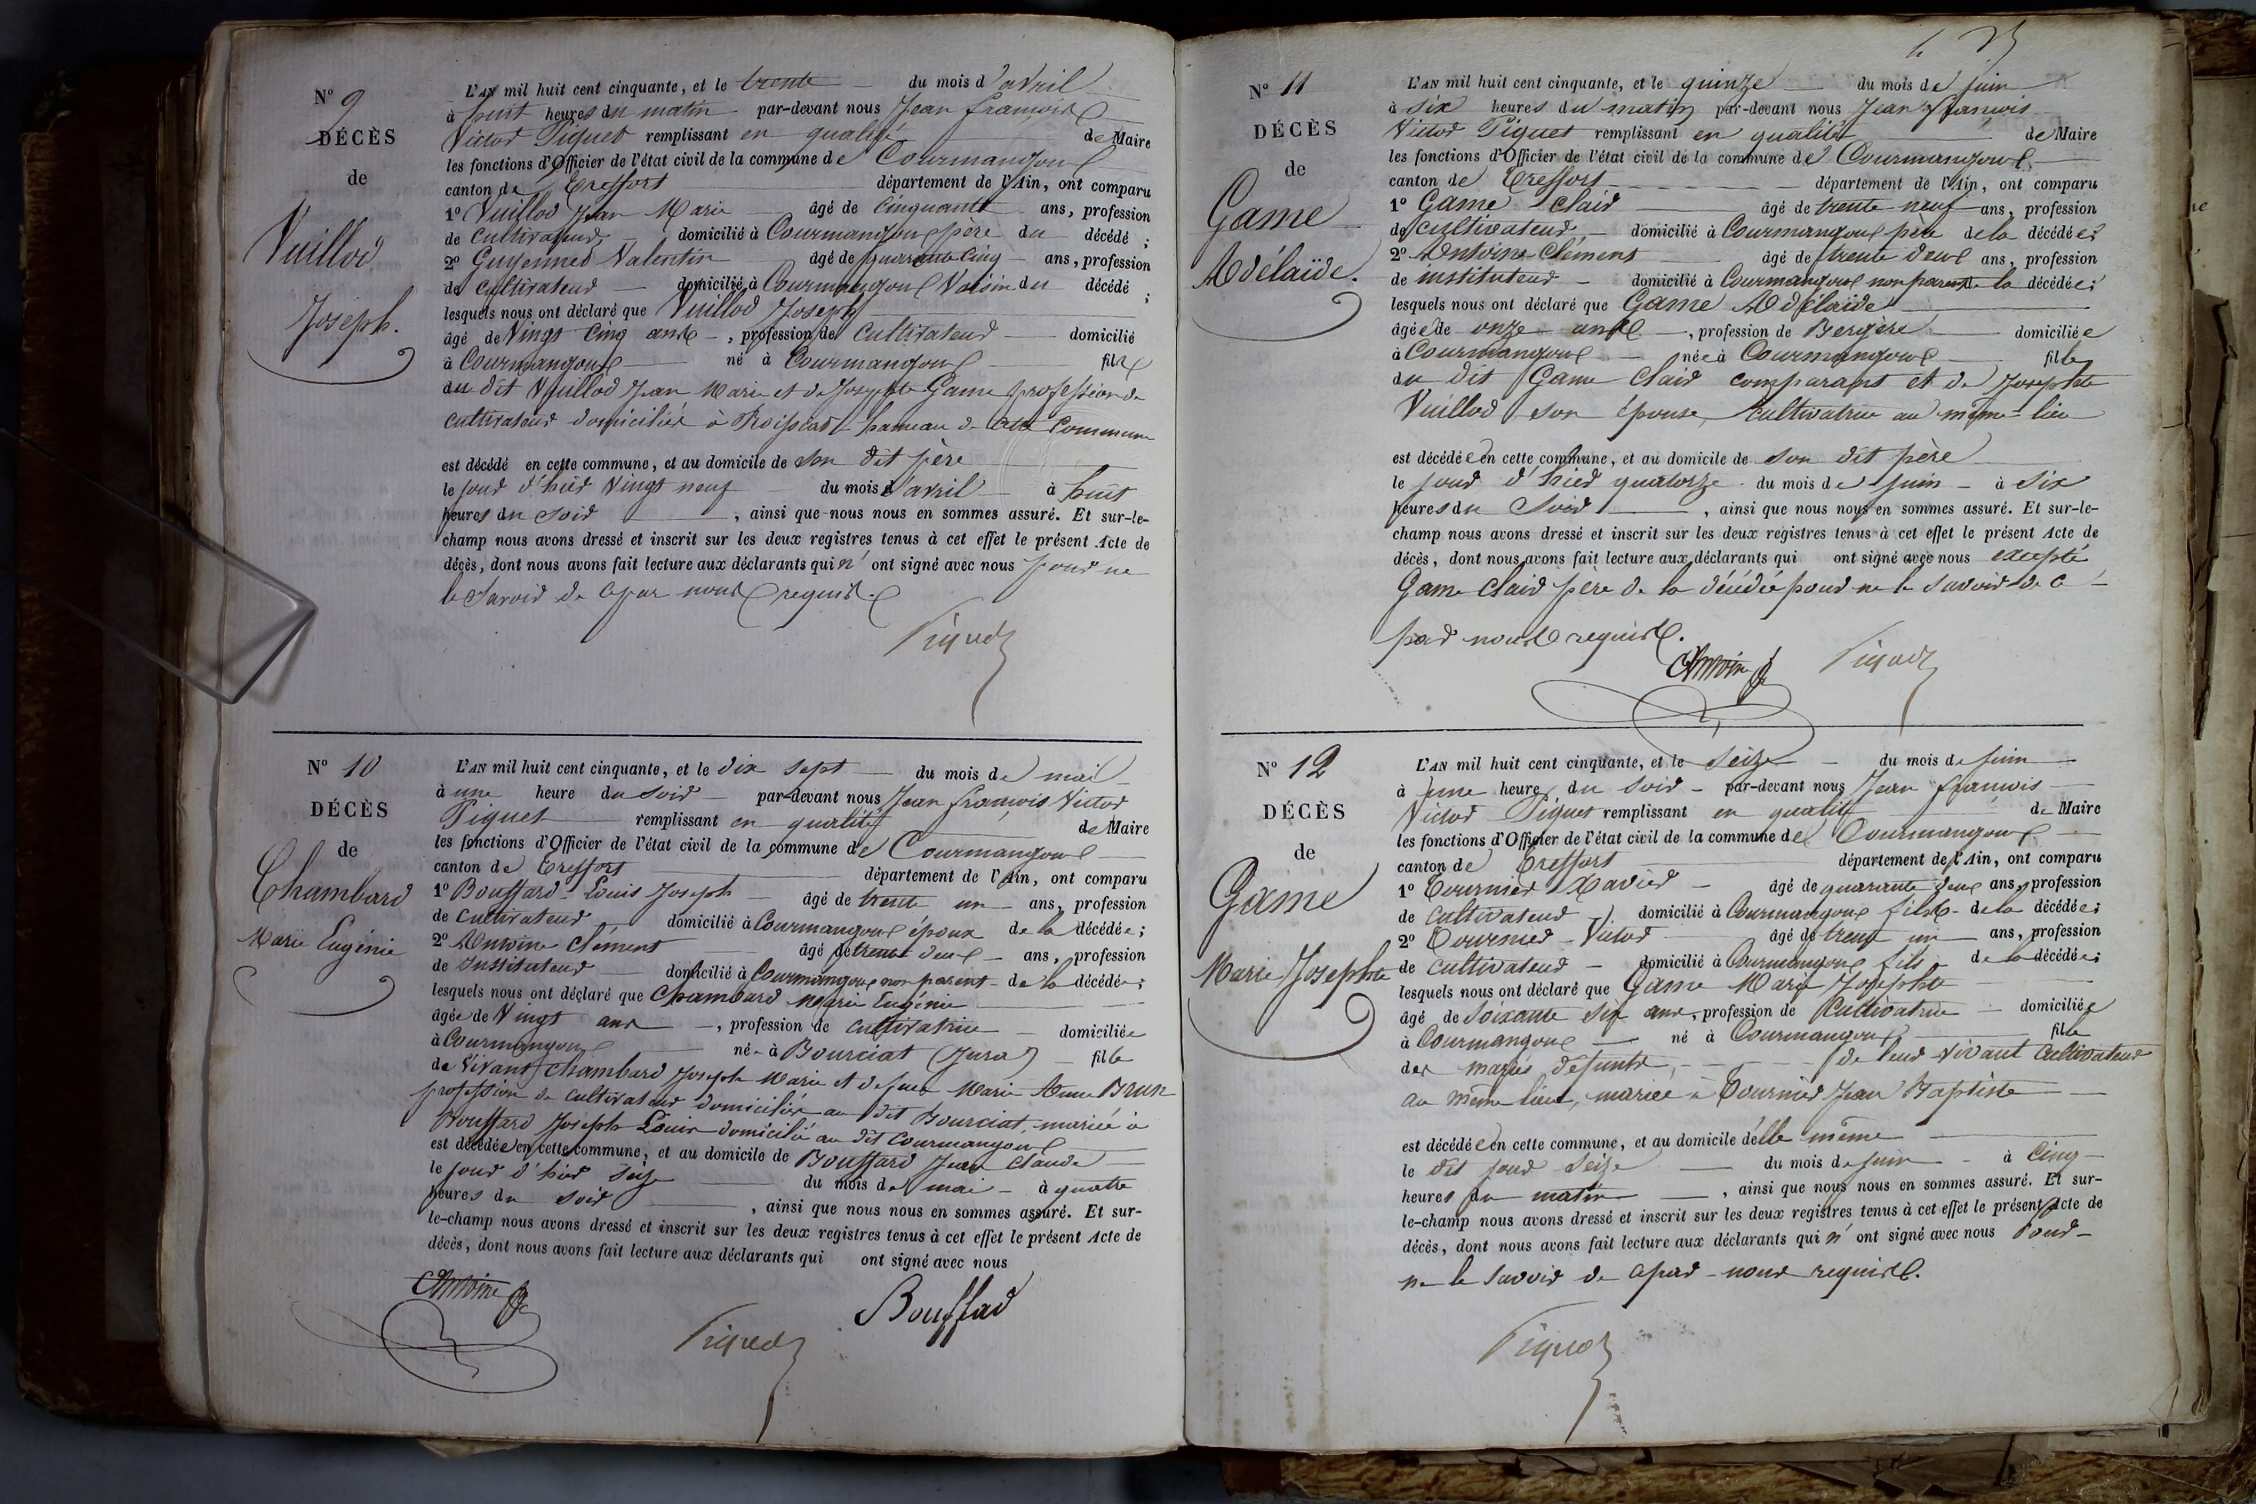 Nº 9
DÉCÈS
de
Vuillod
Joseph.
L'AN mil huit cent cinquante, et le trente du mois d'avril
à huit heures du matin par-devant nous Jean françois
Victor Piquet remplissant en qualité de Maire
les fonctions d'Officier de l'état civil de la commune de Courmangoux
canton de Treffort département de l'Ain, ont comparu
1º Vuillod Jean Marie âgé de cinquante ans, profession
de cultivateur domicilié à Courmangoux père du décédé ;
2º Guyennet Valentin âgé de quarante cinq ans, profession
de cultivateur domicilié à Courmangoux Voisin du décédé ;
lesquels nous ont déclaré que Vuillod Joseph
âgé de Vingt cinq ans, profession de cultivateur domicilié
à Courmangoux né à Courmangoux fils
du dit Vuillod Jean Marie et de Josephte Game profession de
cultivateur domiciliés à Roissiat hameau de cette Commune
est décédé en cette commune, et au domicile de son dit père
le jour d'hier Vingt neuf du mois d'avril à huit
heures du soir, ainsi que nous nous en sommes assuré. Et sur-le-
champ nous avons dressé et inscrit sur les deux registres tenus à cet effet le présent Acte de
décès, dont nous avons fait lecture aux déclarants qui n'ont signé avec nous pour ne
le savoir de ce par nous requis.
Piquet
Nº 10
DÉCÈS
de
Chambard
Marie Eugénie
L'AN mil huit cent cinquante, et le dix sept du mois de mai
à une heure du soir par-devant nous Jean françois Victor
Piquet remplissant en qualité de Maire
les fonctions d'Officier de l'état civil de la commune de Courmangoux
canton de Treffort département de l'Ain, ont comparu
1º Bouffard Louis Joseph âgé de trente un ans, profession
de cultivateur domicilié à Courmangoux époux de la décédée ;
2º Antoine Clément âgé de trente deux ans, profession
de Instituteur domicilié à Courmangoux non parent de la décédée ;
lesquels nous ont déclaré que Chambard Marie Eugénie
âgée de Vingt ans, profession de cultivatrice domiciliée
à Courmangoux né à Bourciat (Jura) fille
de Vivant Chambard Joseph Marie et de feue Marie Anne Brun
profession de cultivateur domiciliés au dit Bourciat, mariée à
Bouffard Joseph Louis domicilié au dit Courmangoux
est décédée en cette commune, et au domicile de Bouffard Jean Claude
le jour d'hier seize du mois de mai à quatre
heures du soir, ainsi que nous nous en sommes assuré. Et sur-
le-champ nous avons dressé et inscrit sur les deux registres tenus à cet effet le présent Acte de
décès, dont nous avons fait lecture aux déclarants qui ont signé avec nous
Antoine
Piquet
Bouffard
Nº 11
DÉCÈS
de
Game
Adélaïde.
L'AN mil huit cent cinquante, et le quinze du mois de juin
à six heures du matin par-devant nous Jean françois
Victor Piquet remplissant en qualité de Maire
les fonctions d'Officier de l'état civil de la commune de Courmangoux
canton de Treffort département de l'Ain, ont comparu
1º Game Clair âgé de trente neuf ans, profession
de cultivateur domicilié à Courmangoux père de la décédée ;
2º Antoine Clément âgé de trente deux ans, profession
de instituteur domicilié à Courmangoux non parent de la décédée ;
lesquels nous ont déclaré que Game Adélaïde
âgée de onze ans, profession de Bergère domiciliée
à Courmangoux née à Courmangoux fille
du dit Game Clair comparant et de Josephte
Vuillod son épouse, cultivatrice au même lieu
est décédée en cette commune, et au domicile de son dit père
le jour d'hier quatorze du mois de juin à six
heures du soir, ainsi que nous nous en sommes assuré. Et sur-le-
champ nous avons dressé et inscrit sur les deux registres tenus à cet effet le présent Acte de
décès, dont nous avons fait lecture aux déclarants qui ont signé avec nous excepté
Game Clair père de la décédée pour ne le savoir de ce
par nous requis.
Antoine Piquet
Nº 12
DÉCÈS
de
Game
Marie Josephte
L'AN mil huit cent cinquante, et le seize du mois de juin
à une heure du soir par-devant nous Jean françois
Victor Piquet remplissant en qualité de Maire
les fonctions d'Officier de l'état civil de la commune de Courmangoux
canton de Treffort département de l'Ain, ont comparu
1º Tournier Xavier âgé de quarante deux ans, profession
de cultivateur domicilié à Courmangoux fils de la décédée ;
2º Tournier Victor âgé de trente un ans, profession
de cultivateur domicilié à Courmangoux fils de la décédée ;
lesquels nous ont déclaré que Game Marie Josephte
âgé de soixante six ans, profession de Cultivatrice domiciliée
à Courmangoux né à Courmangoux fille
des mariés défunts, de leur vivant Cultivateur
au même lieu, mariée à Tournier Jean Baptiste
est décédée en cette commune, et au domicile d'elle même
le dit jour seize du mois de juin à cinq
heures du matin, ainsi que nous nous en sommes assuré. Et sur-
le-champ nous avons dressé et inscrit sur les deux registres tenus à cet effet le présent Acte de
décès, dont nous avons fait lecture aux déclarants qui n'ont signé avec nous Pour
ne le savoir de ce par nous requis.
Piquet